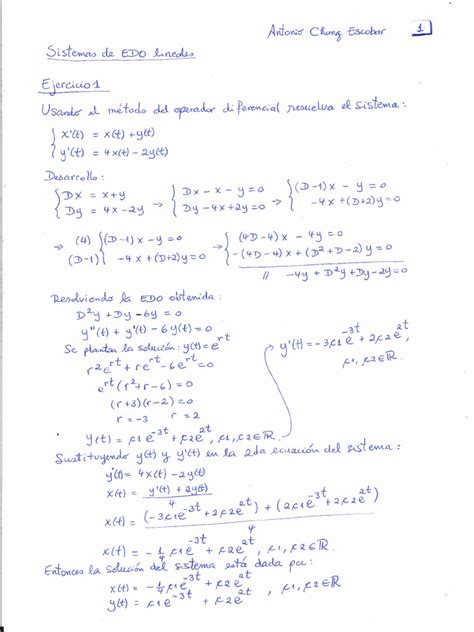 Antonio Chong Escobar 1
Sistemas de EDO lineales
Ejercicio 1
Usando el método del operador diferencial resuelva el sistema:
{ x'(t) = x(t) + y(t)
{ y'(t) = 4x(t) - 2y(t)
Desarrollo:
{ Dx = x+y ⇒ { Dx - x - y = 0 ⇒ { (D-1)x - y = 0
{ Dy = 4x-2y { Dy - 4x + 2y = 0 { -4x + (D+2)y = 0
⇒ (4) { (D-1)x - y = 0 ⇒ { (4D-4)x - 4y = 0
(D-1) { -4x + (D+2)y = 0 { -(4D-4)x + (D²+D-2)y = 0
// -4y + D²y + Dy - 2y = 0
Resolviendo la EDO obtenida:
D²y + Dy - 6y = 0
y''(t) + y'(t) - 6y(t) = 0
Se plantea la solución: y(t) = e^rt
r²e^rt + re^rt - 6e^rt = 0
e^rt (r²+r-6) = 0
(r+3)(r-2) = 0
r = -3 r = 2
y(t) = c1e^-3t + c2e^2t, c1, c2 ∈ ℝ.
y'(t) = -3c1e^-3t + 2c2e^2t,
c1, c2 ∈ ℝ.
Sustituyendo y(t) y y'(t) en la 2da ecuación del sistema:
y'(t) = 4x(t) - 2y(t)
x(t) = y'(t) + 2y(t) / 4
x(t) = (-3c1e^-3t + 2c2e^2t) + (2c1e^-3t + 2c2e^2t) / 4
x(t) = -1/4 c1e^-3t + c2e^2t, c1, c2 ∈ ℝ.
Entonces la solución del sistema está dada por:
x(t) = -1/4 c1e^-3t + c2e^2t
y(t) = c1e^-3t + c2e^2t, c1, c2 ∈ ℝ.